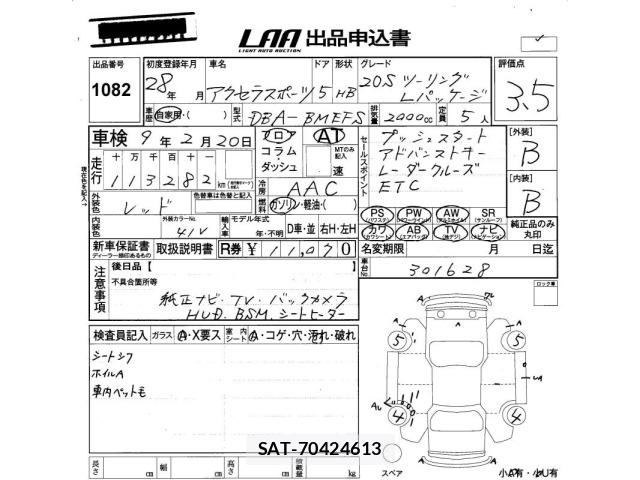 LAA 出品申込書
LIGHT AUTO AUCTION
出品番号 1082
初度登録年月 28年 月
車名 アクセラスポーツ
ドア 5 形状 HB
グレード 20S ツーリング
Lパッケージ
評価点 3.5
車歴 自家用・( )
型式 DBA-BMEFS
排気量 2000cc
定員 5人
車検 9年2月20日
フロア コラム・ダッシュ
AT
MTのみ記入 速
セールスポイント
プッシュスタート
アドバンストキー
レーダークルーズ
ETC
【外装】 B
【内装】 B
走行 十万千百十一
113282 km
冷房 AAC
燃料 ガソリン・軽油・( )
外装色 レッド
色替車は色替と記入
内装色
外装カラーNo. 41V
輸入車 モデル年式 年・不明
D車・並 右H・左H
PS (パワステ) PW (パワーウインド) AW (アルミホイール) SR (サンルーフ)
カワ (カワシート) AB (エアバッグ) TV (地デジ) ナビ (ナビゲーション)
純正品のみ丸印
新車保証書
ディーラー捺印あるもの
取扱説明書
R券 ¥11,070
名変期限 月 日迄
車台No. 301628
注意事項
後日品【 】
不具合箇所等
純正ナビ・TV・バックカメラ
HUD. BSM. シートヒーター
ロック車
検査員記入 ガラス A・X要ス 室内シート A・コゲ・穴・汚れ・破れ
シートシワ
ホイルA
車内ペット毛
A A
5 5
A UA
AU
4 4
A
SAT-70424613
長さ cm 幅 cm 高さ cm 積載量 kg
スペア
小A有・小U有